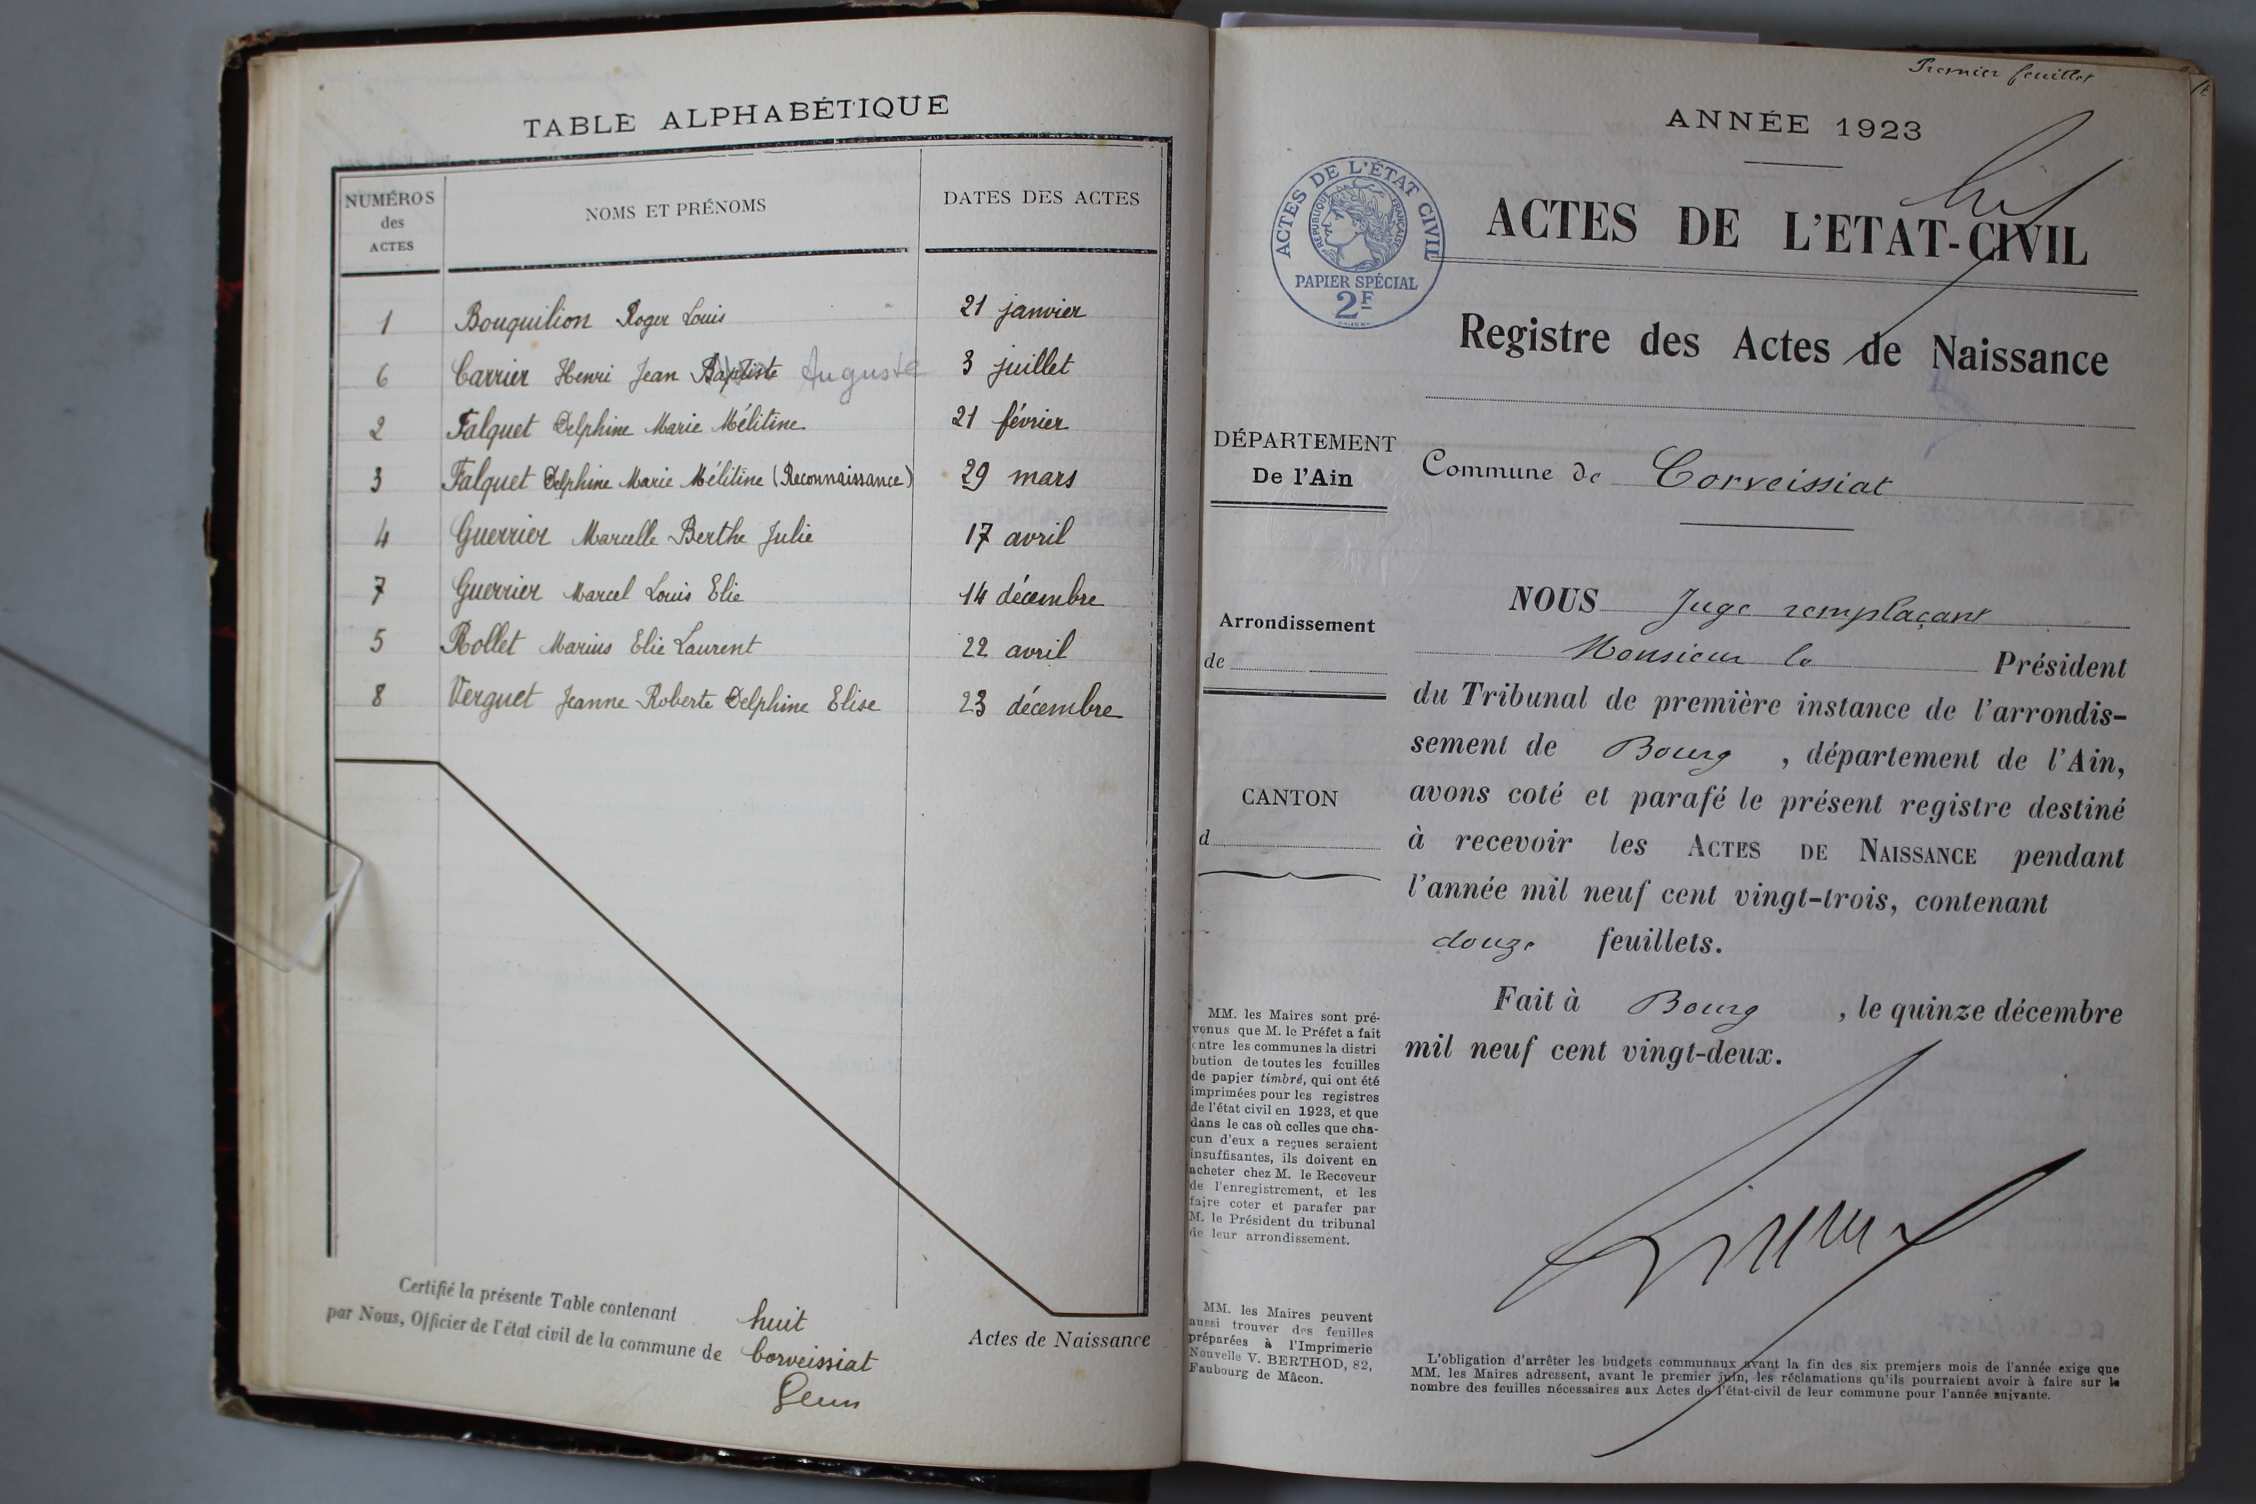 TABLE ALPHABÉTIQUE
NUMÉROS
des
ACTES
NOMS ET PRÉNOMS
DATES DES ACTES
1 Bouquilion Roger Louis 21 janvier
6 Carrier Henri Jean Baptiste Auguste 3 juillet
2 Falquet Delphine Marie Mélitine 21 février
3 Falquet Delphine Marie Mélitine (Reconnaissance) 29 mars
4 Guerrier Marcelle Berthe Julie 17 avril
7 Guerrier Marcel Louis Elie 14 décembre
5 Rollet Marius Elie Laurent 22 avril
8 Verguet Jeanne Roberte Delphine Elise 23 décembre
Certifié la présente Table contenant huit Actes de Naissance
par Nous, Officier de l'état civil de la commune de Corveissiat
Premier feuillet
ANNÉE 1923
ACTES DE L'ÉTAT CIVIL
RÉPUBLIQUE FRANÇAISE
PAPIER SPÉCIAL
2F
ACTES DE L'ETAT-CIVIL
Registre des Actes de Naissance
DÉPARTEMENT
De l'Ain
Arrondissement
de
CANTON
d
Commune de Corveissiat
NOUS Juge remplaçant
Monsieur le Président
du Tribunal de première instance de l'arrondis-
sement de Bourg , département de l'Ain,
avons coté et parafé le présent registre destiné
à recevoir les ACTES DE NAISSANCE pendant
l'année mil neuf cent vingt-trois, contenant
douze feuillets.
Fait à Bourg , le quinze décembre
mil neuf cent vingt-deux.
MM. les Maires sont pré-
venus que M. le Préfet a fait
entre les communes la distri
bution de toutes les feuilles
de papier timbré, qui ont été
imprimées pour les registres
de l'état civil en 1923, et que
dans le cas où celles que cha-
cun d'eux a reçues seraient
insuffisantes, ils doivent en
acheter chez M. le Receveur
de l'enregistrement, et les
faire coter et parafer par
M. le Président du tribunal
de leur arrondissement.
MM. les Maires peuvent
aussi trouver des feuilles
préparées à l'Imprimerie
Nouvelle V. BERTHOD, 82,
Faubourg de Mâcon.
L'obligation d'arrêter les budgets communaux avant la fin des six premiers mois de l'année exige que
MM. les Maires adressent, avant le premier juin, les réclamations qu'ils pourraient avoir à faire sur le
nombre des feuilles nécessaires aux Actes de l'état-civil de leur commune pour l'année suivante.